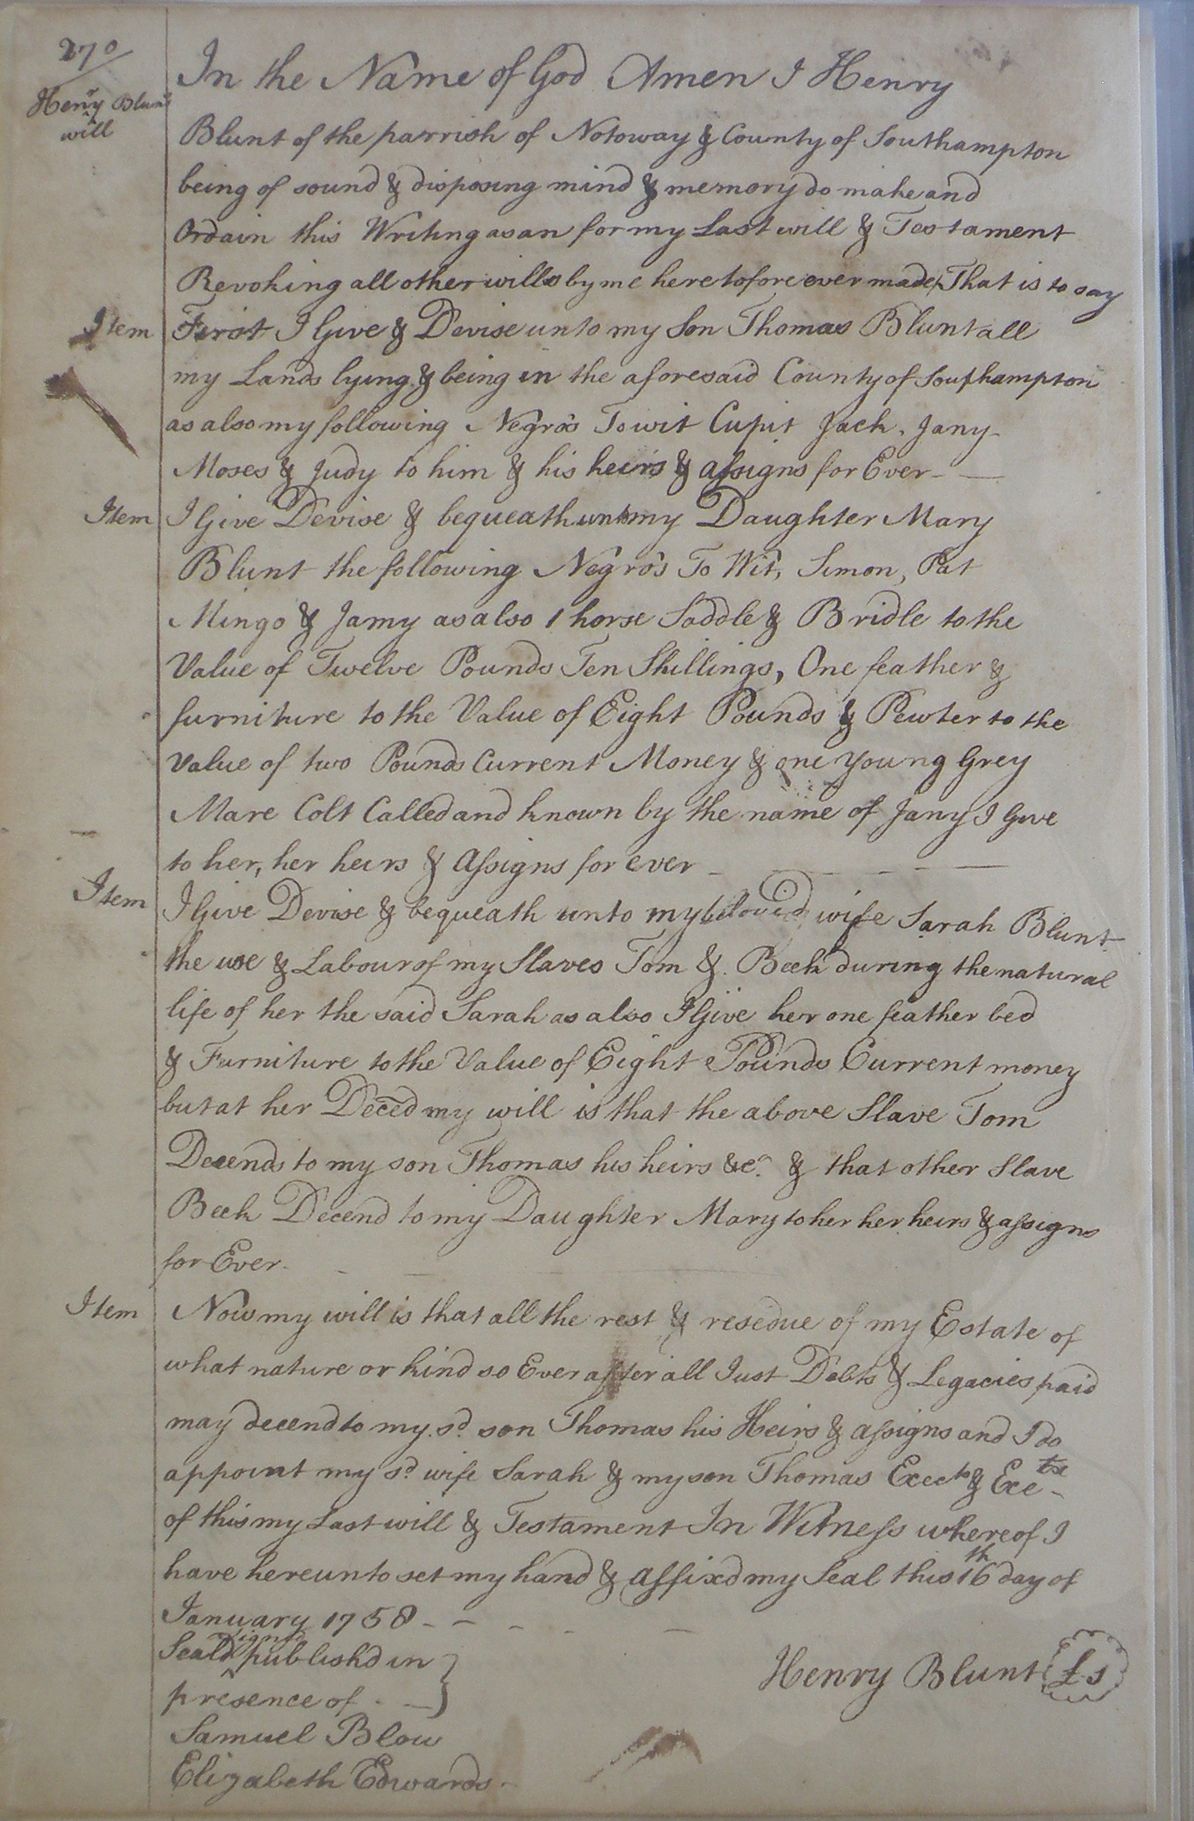 270
Henry Blunt
will
In the Name of God Amen I Henry
Blunt of the parrish of Notoway & County of Southampton
being of sound & disposing mind & memory do make and
Ordain this Writing as an for my Last will & Testament
Revoking all other wills by me heretofore ever made, That is to say
Item First I Give & Devise unto my Son Thomas Blunt all
my Lands lying & being in the aforesaid County of Southampton
as also my following Negros Towit Cupit Jack, Jany
Moses & Judy to him & his heirs & assigns for Ever
Item I Give Devise & bequeath unto my Daughter Mary
Blunt the following Negro's To Wit, Simon, Pat
Mingo & Jamy as also 1 horse Saddle & Bridle to the
Value of Twelve Pounds Ten Shillings, One feather &
furniture to the Value of Eight Pounds & Pewter to the
Value of two Pounds Current Money & one young Grey
Mare Colt Called and known by the name of Jany I Give
to her, her heirs & assigns for ever
Item I Give Devise & bequeath unto my beloved wife Sarah Blunt
the use & Labour of my Slaves Tom & Beck during the natural
life of her the said Sarah as also I Give her one feather bed
& Furniture to the Value of Eight Pounds Current money
but at her Deced my will is that the above Slave Tom
Decends to my son Thomas his heirs &c. & that other Slave
Beck Decend to my Daughter Mary to her her heirs & assigns
for Ever
Item Now my will is that all the rest & residue of my Estate of
what nature or kind so Ever after all Just Debts & Legacies paid
may decend to my sd. son Thomas his Heirs & assigns and I do
appoint my sd. wife Sarah & my son Thomas Exects & Exetx
of this my Last will & Testament In Witness whereof I
have hereunto set my hand & affixd my Seal this 16th day of
January 1758
Seal'd Signd publish'd in
presence of
Henry Blunt Ls
Samuel Blow
Elizabeth Edwards